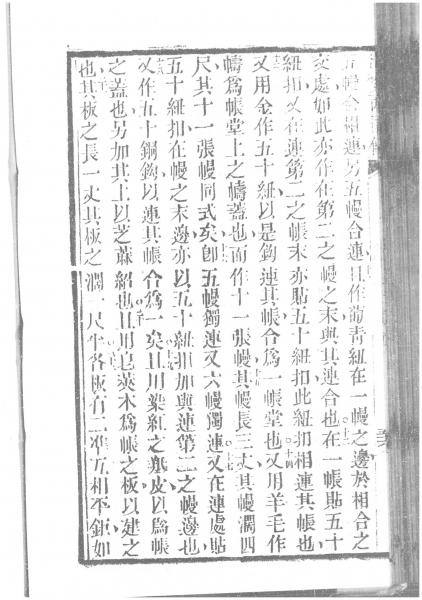 五幔合相連另五幔合連且作葡青紐在一幔之邊於相合之
交處如此亦作在第二之幔之末與其連合也在一帳貼五十
紐扣又在連第二之帳末亦貼五十紐扣此紐扣相連其帳也
又用金作五十紐以是鈎連其帳合爲一帳堂也又用羊毛作
幬爲帳堂上之幬蓋也而作十一張幔其幔長三丈其幔濶四
尺其十一張幔同式矣卽五幔獨連又六幔獨連又在連處貼
五十紐扣在幔之末邊亦以五十紐扣加與連第二之幔邊也
又作五十銅鈎以連其帳合爲一矣且用染紅之羝皮以爲帳
之蓋也另加其上以芝蔴紹也且用皂莢木爲帳之板以建之
也其板之長一丈其板之濶一尺半各板有二準互相平鉅如